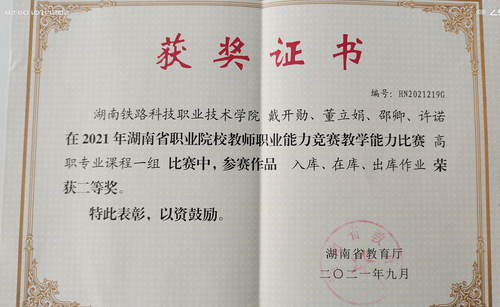 获奖证书
编号：HN2021219G
湖南铁路科技职业技术学院 戴开勋、董立娟、邵卿、许诺
在2021年湖南省职业院校教师职业能力竞赛教学能力比赛 高
职专业课程一组 比赛中，参赛作品 入库、在库、出库作业 荣
获二等奖。
特此表彰，以资鼓励。
湖南省教育厅
二〇二一年九月